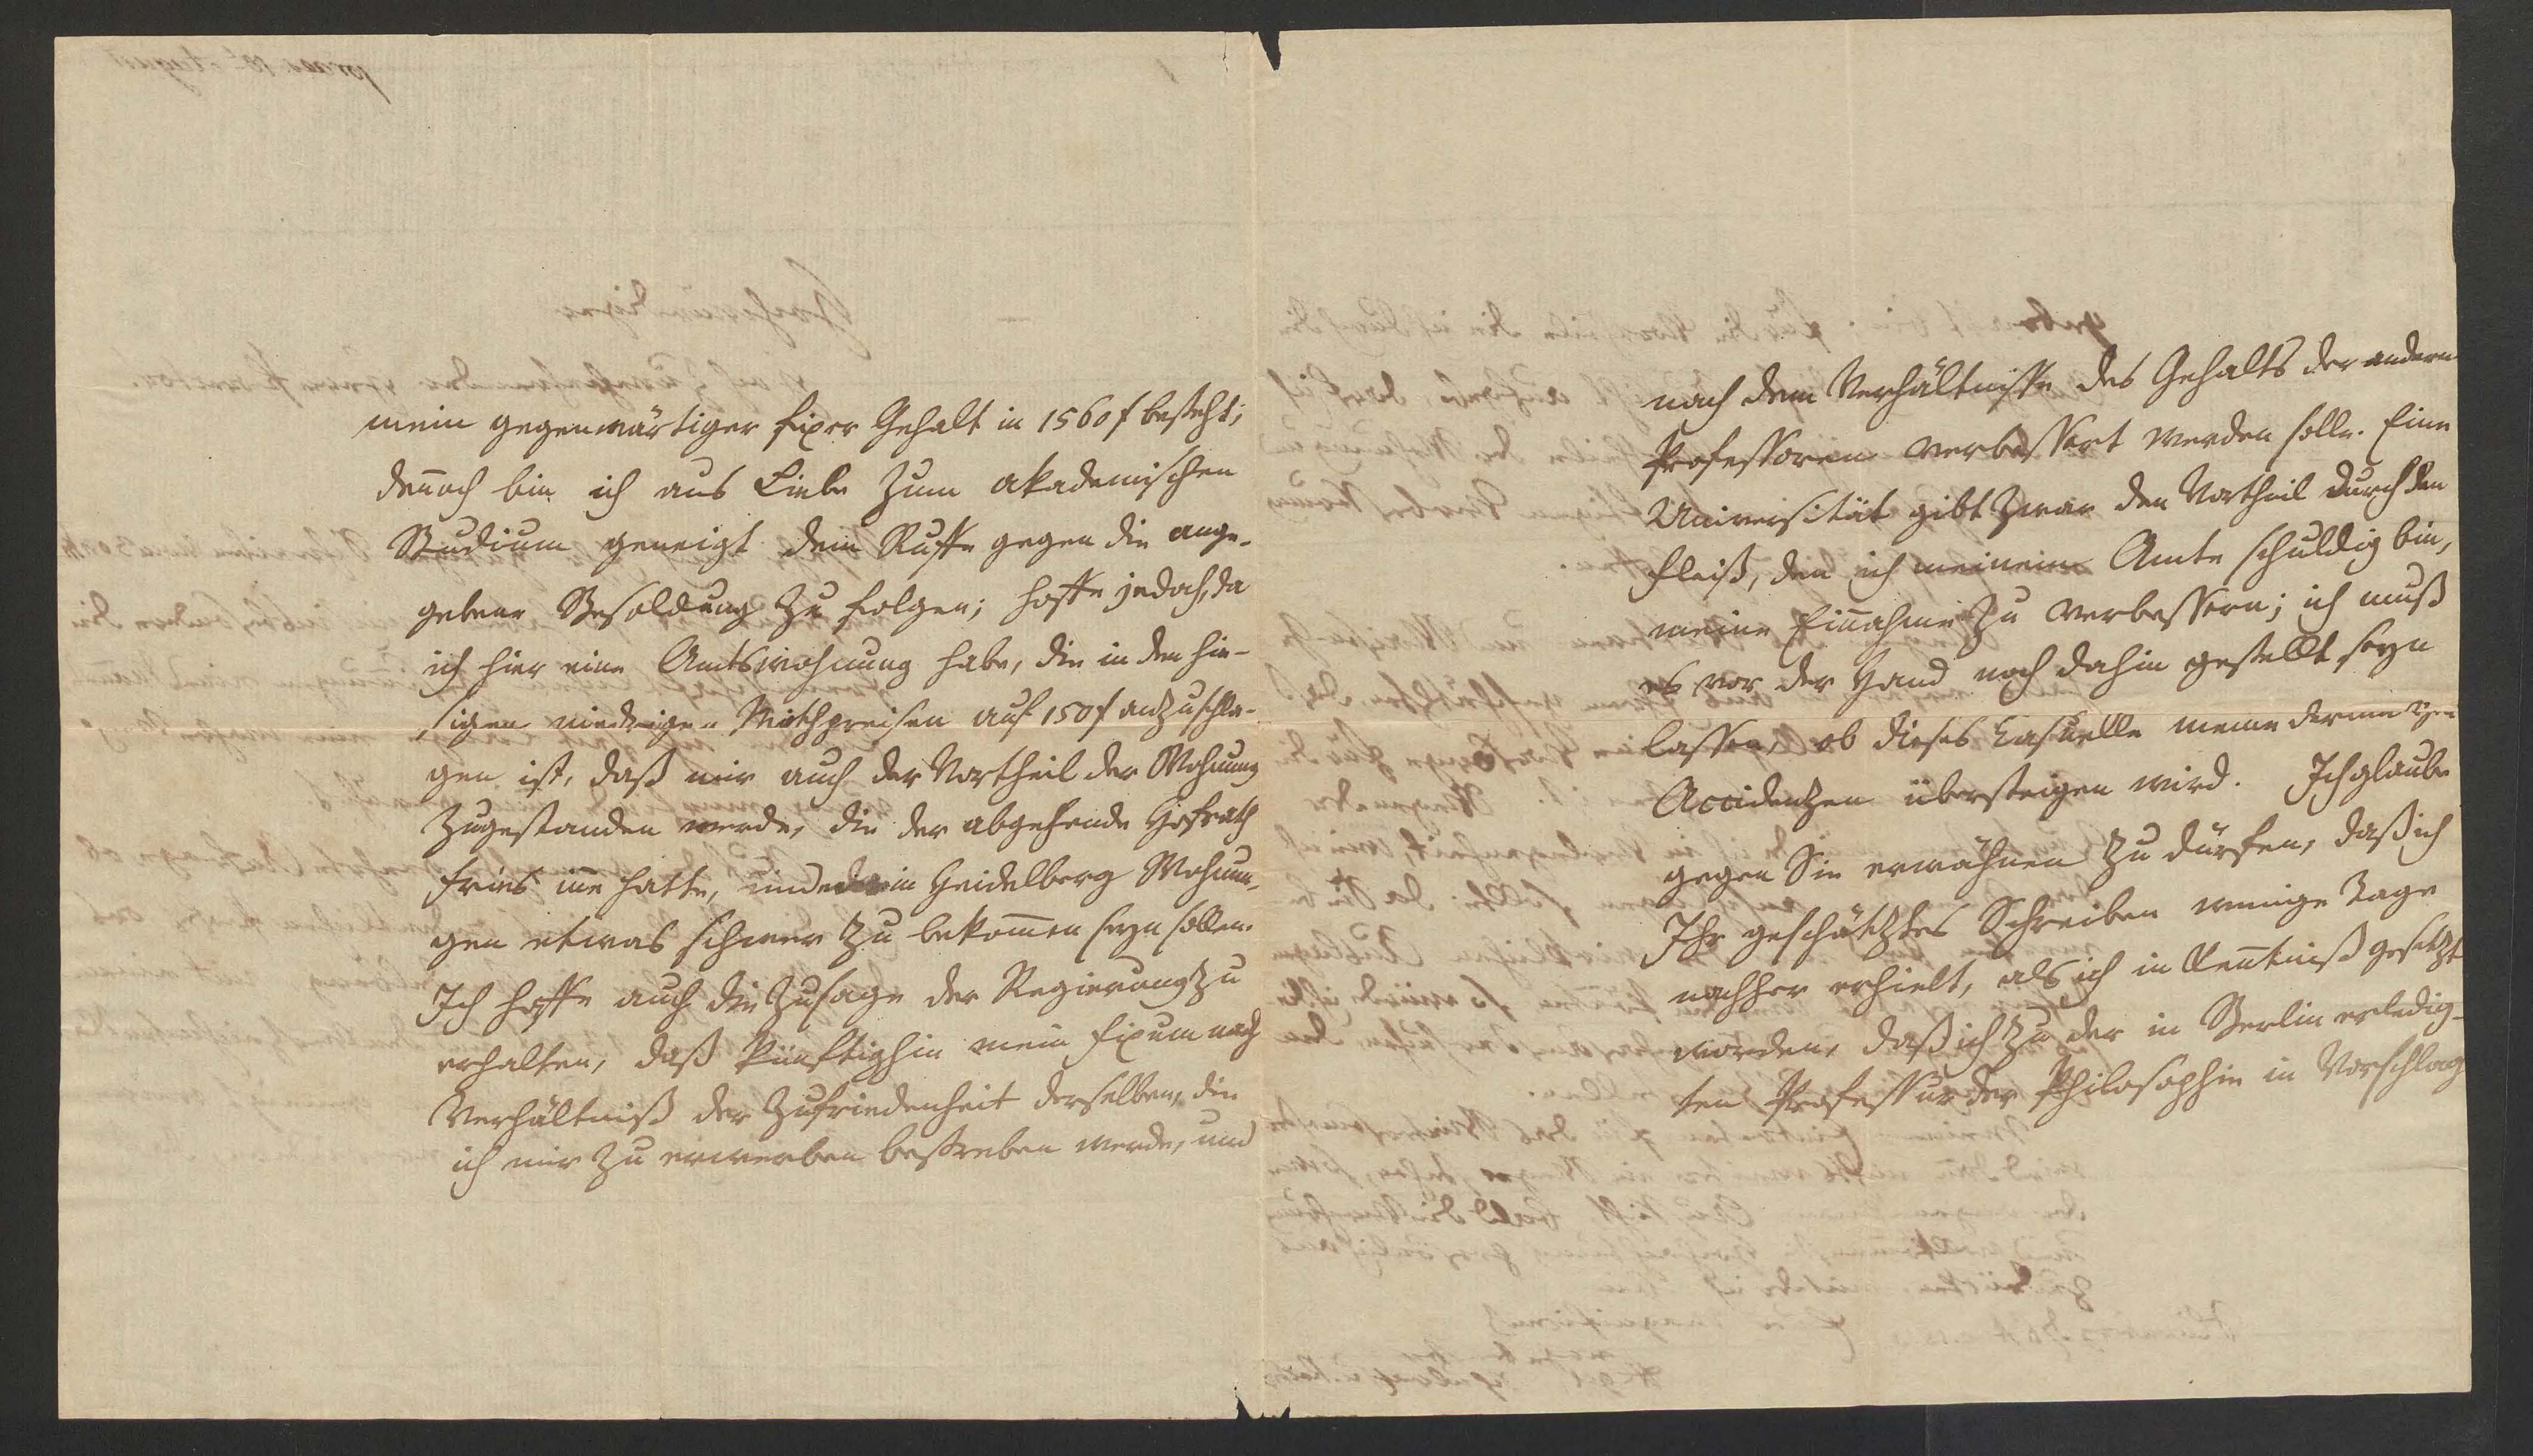 mein gegenwärtiger fixer Gehalt in 1560 f besteht;
deñoch bin ich aus Liebe zum akademischen
Studium geneigt dem Ruffe gegen die ange-
gebene Besoldung zu folgen; hoffe jedoch, da
ich hier eine Amtswohnung habe, die in den hie-
sigen niedrigen Miethpreisen auf 150 f anzuschla-
gen ist, daß mir auch der Vortheil der Wohnung
zugestanden werde, die der abgehende Hofrath
Fries iñe hatte, und in Heidelberg Wohnun-
gen etwas schwer zu bekom̃en seyn sollen.
Ich hoffe auch die Zusage der Regierung zu
erhalten, daß künftighin mein Fixum nach
Verhältniß der Zufriedenheit derselben, die
ich mir zu erwerben bestreben werde, und
nach dem Verhältnisse des Gehalts der andern
Professoren verbessert werden solle. Eine
Universität gibt zwar den Vortheil durch den
Fleiß, den ich meinem Amte schuldig bin,
meine Eiñahme zu verbessern; ich muß
es vor der Hand noch dahin gestellt seyn
lassen, ob dieses Kasuelle meine dermaligen
Accidenzen übersteigen wird. Ich glaube
gegen Sie erwähnen zu dürfen, daß ich
Ihr geschätztes Schreiben wenige Tage
nachher erhielt, als ich in Keñtniß gesetzt
worden, daß ich zu der in Berlin erledig-
ten Professur der Philosophie in Vorschlag